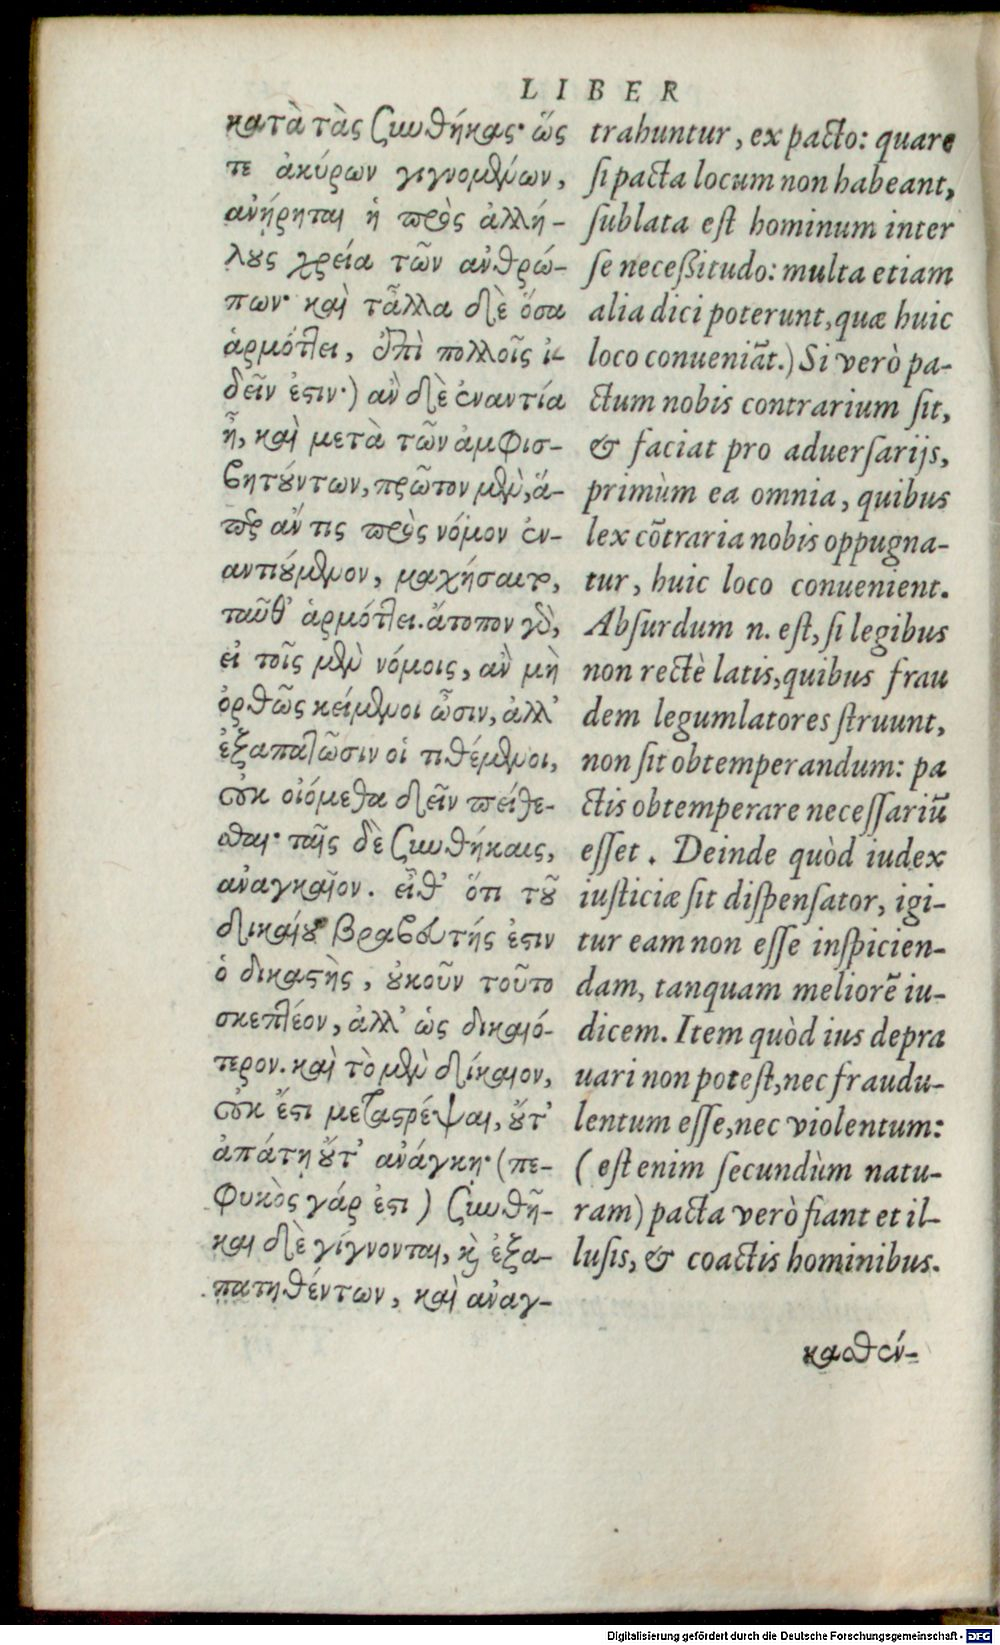 LIBER
κατὰ τὰς συνθήκας· ὥς
τε ἀκύρων γιγνομένων,
ἀνῄρηται ἡ πρὸς ἀλλή-
λους χρεία τῶν ἀνθρώ-
πων· καὶ τἆλλα δὲ ὅσα
ἁρμόττει, ἐπὶ πολλοῖς ἰ-
δεῖν ἔστιν·) ἂν δὲ ἐναντία
ᾖ, καὶ μετὰ τῶν ἀμφισ-
βητούντων, πρῶτον μὲν, ἅ-
περ ἄν τις πρὸς νόμον ἐν-
αντιούμενον, μαχήσαιτο,
ταῦθ' ἁρμόττει. ἄτοπον γὰρ,
εἰ τοῖς μὲν νόμοις, ἂν μὴ
ὀρθῶς κείμενοι ὦσιν, ἀλλ'
ἐξαπατῶσιν οἱ τιθέμενοι,
οὐκ οἰόμεθα δεῖν πείθε-
σθαι· ταῖς δὲ συνθήκαις,
ἀναγκαῖον. εἶθ' ὅτι τοῦ
δικαίου βραβευτής ἐστιν
ὁ δικαστὴς, οὐκοῦν τοῦτο
σκεπτέον, ἀλλ' ὡς δικαιό-
τερον. καὶ τὸ μὲν δίκαιον,
οὐκ ἔστι μεταστρέψαι, οὔτ'
ἀπάτῃ οὔτ' ἀνάγκῃ· (πε-
φυκὸς γάρ ἐστι) συνθῆ-
και δὲ γίγνονται, καὶ ἐξα-
πατηθέντων, καὶ ἀναγ-
trahuntur, ex pacto: quare
si pacta locum non habeant,
sublata est hominum inter
se necessitudo: multa etiam
alia dici poterunt, quæ huic
loco conueniāt.) Si verò pa-
ctum nobis contrarium sit,
& faciat pro aduersarijs,
primùm ea omnia, quibus
lex cōtraria nobis oppugna-
tur, huic loco conuenient.
Absurdum n. est, si legibus
non rectè latis, quibus frau
dem legumlatores struunt,
non sit obtemperandum: pa
ctis obtemperare necessariū
esset. Deinde quòd iudex
iusticiæ sit dispensator, igi-
tur eam non esse inspicien-
dam, tanquam meliorē iu-
dicem. Item quòd ius depra
uari non potest, nec fraudu-
lentum esse, nec violentum:
(est enim secundùm natu-
ram) pacta verò fiant et il-
lusis, & coactis hominibus.
κασθέν-
Digitalisierung gefördert durch die Deutsche Forschungsgemeinschaft - DFG